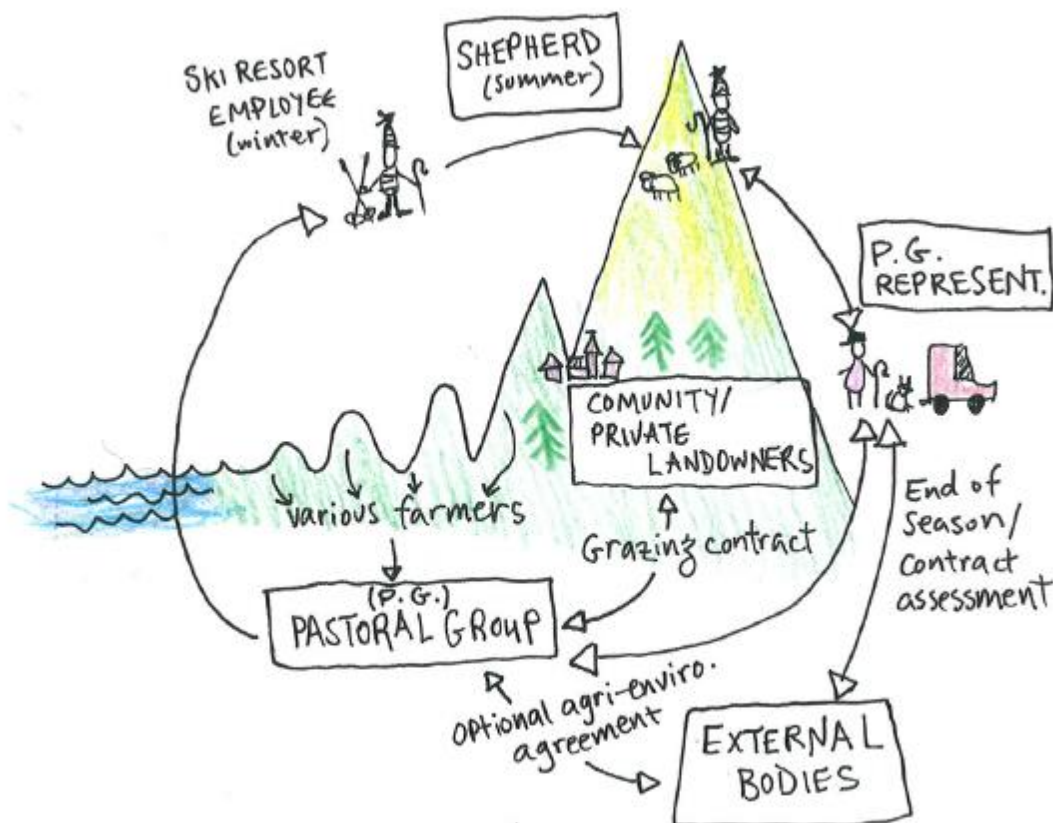 SKI RESORT
EMPLOYEE
(winter)
SHEPHERD
(summer)
P.G.
REPRESENT.
COMUNITY/
PRIVATE
LANDOWNERS
various farmers
Grazing contract
End of
season/
contract
assessment
(P.G.)
PASTORAL GROUP
optional agri-enviro.
agreement
EXTERNAL
BODIES